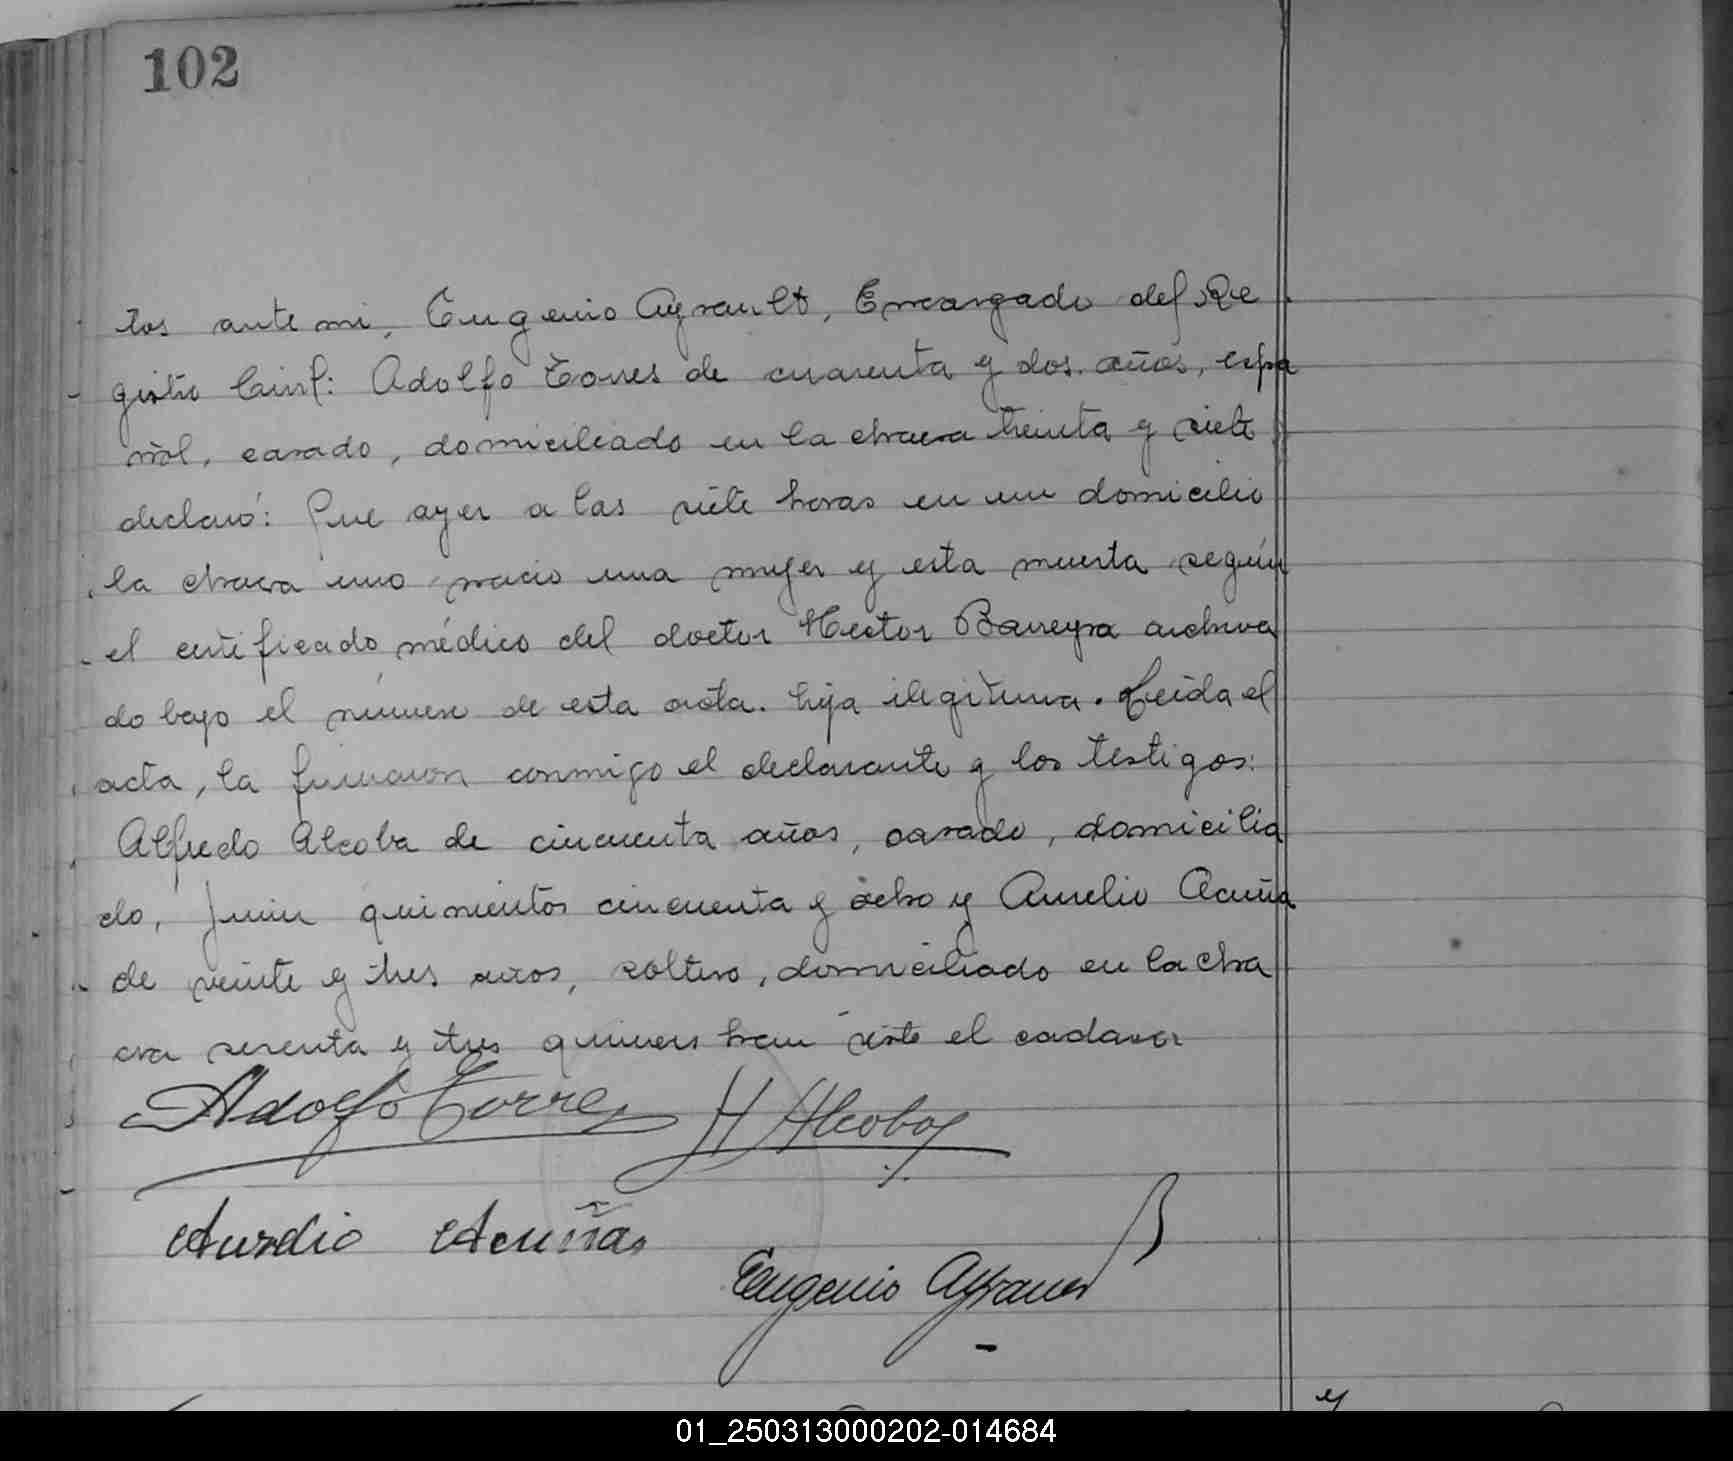 102
tos ante mi, Eugenio Ayrault, Encargado del Re
gistro Civil: Adolfo Torres de cuarenta y dos años, espa
ñol, casado, domiciliado en la chacra treinta y siete
declaró: Que ayer a las siete horas en un domicilio
la chacra uno nacio una mujer y esta muerta según
el certificado médico del doctor Hector Barreyra archiva
do bajo el número de esta acta. hija ilegitima. Leida el
acta, la firmaron conmigo el declarante y los testigos:
Alfredo Alcoba de cincuenta años, casado, domicilia
do, Junin quinientos cincuenta y ocho y Aurelio Acuña
de veinte y tres años, soltero, domiciliado en la cha
cra sesenta y tres quienes han visto el cadaver
Adolfo Torres Alcoba
Aurelio Acuña
Eugenio Ayrault
01_250313000202-014684